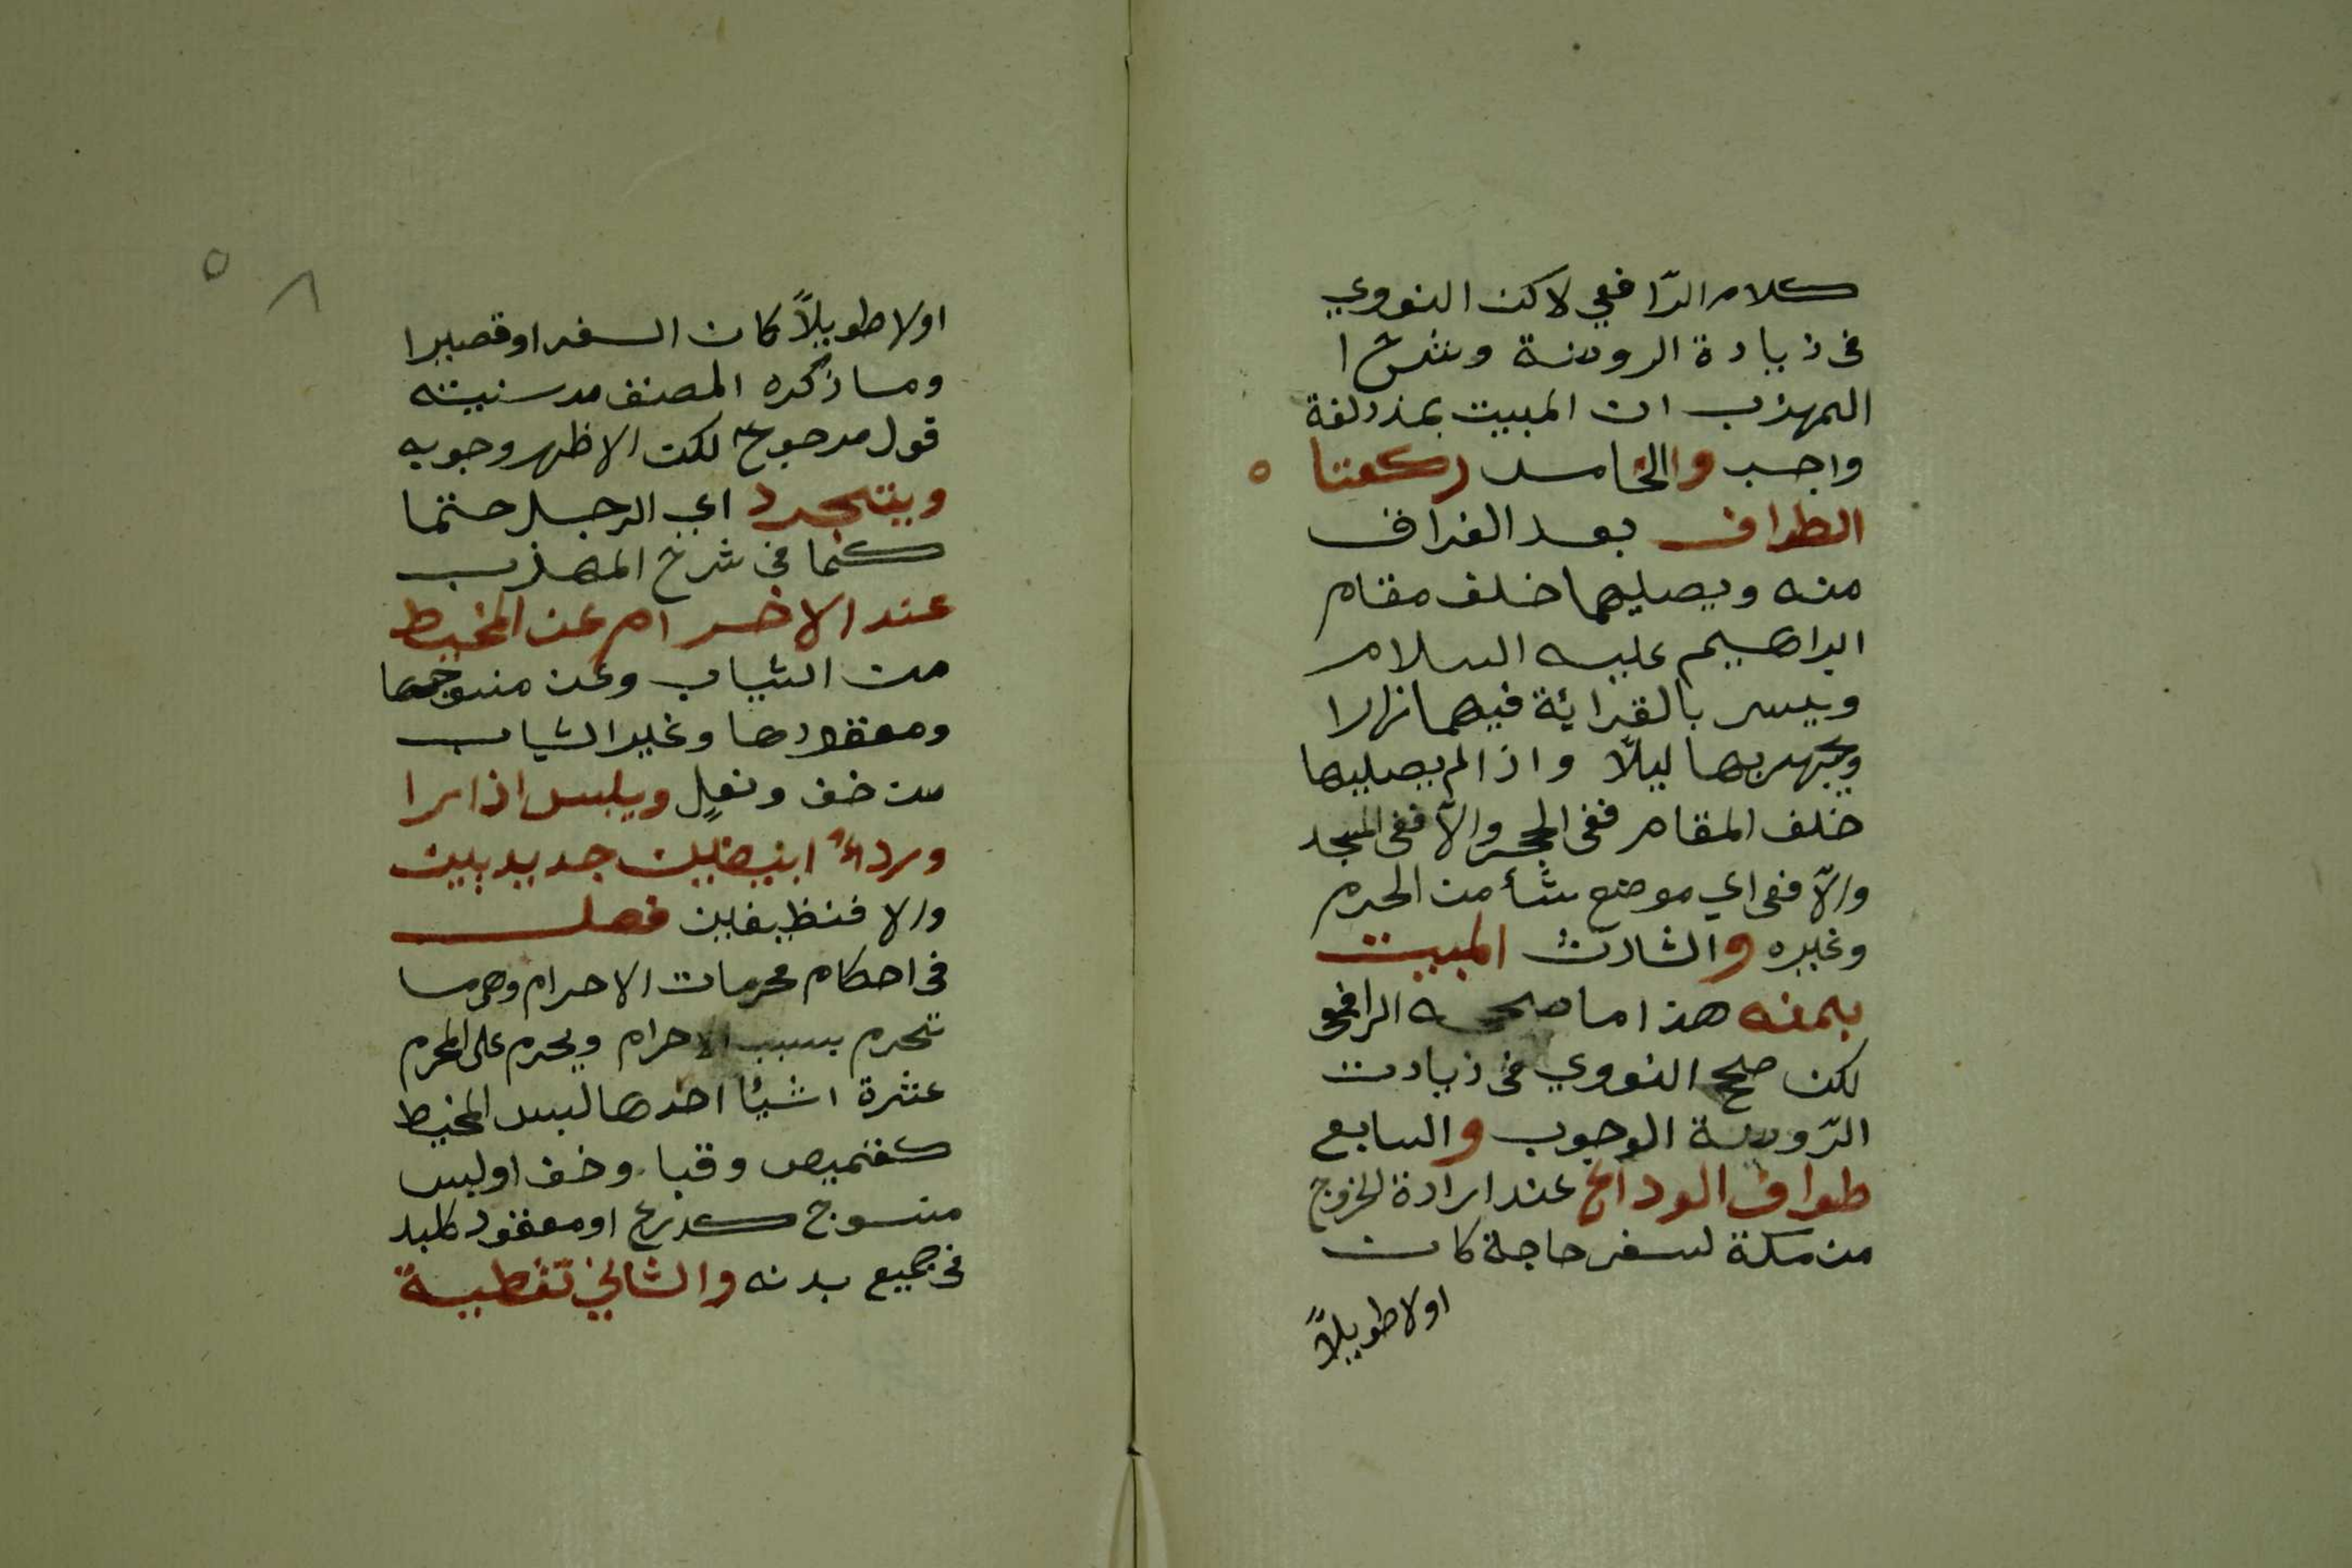 كلام الرّافعي لاكن النووي
في زيادة الروضة وشرح ا
المهذب ان المبيت بمذدلفة
واجب والخامس ركعتا
الطواف بعد الفراف
منه ويصليهما خلف مقام
ابراهيم عليه السلام
ويسر بالقرائة فيهما نهارا
ويجهر بها ليلًا واذا لم يصليها
خلف المقام ففي الحجر والّا ففي المسجد
والّا ففي اي موضع شأ من الحرم
وغيره والسادس المبيت
بمنه هذا ما صححه الرافعي
لكن صحح النووي في زيادت
الرّوضة الوجوب والسابع
طواف الوداع عند ارادة الخروج
من مكة لسفر حاجة كان
اولا طويلًا
٥٨
اولا طويلًا كان السفر او قصيرا
وما ذكره المصنف من سنيته
قول مرجوع لكن الاظهر وجوبه
ويتجرد اي الرجل حتما
كما في شرح المهذب
عند الاحرام عن المخيط
من الثياب وعن منسوجها
ومعقودها وغير الثياب
من خف ونعلٍ ويلبس اذارا
ورداءً ابيضين جديدين
والا فنظيفين فصل
في احكام محرمات الاحرام وهي ما
تحرم بسبب الاحرام ويحرم على المحرم
عشرة اشيئا احدها لبس المخيط
كقميص وقباء وخف او لبس
منسوج كدرع او معقود كلبد
في جميع بدنه والثاني تغطية